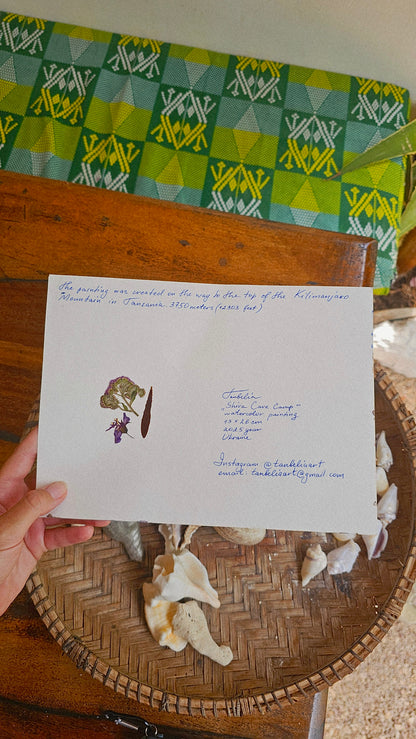 The painting was created on the way to the top of the Kilimanjaro
Mountain in Tanzania 3750 meters (12303 feet)
Tankelia
„Shira Cave Camp"
watercolor painting
17 × 26 cm
2025 year
Ukraine
Instagram @tankeliaart
email: tankeliaart@gmail.com